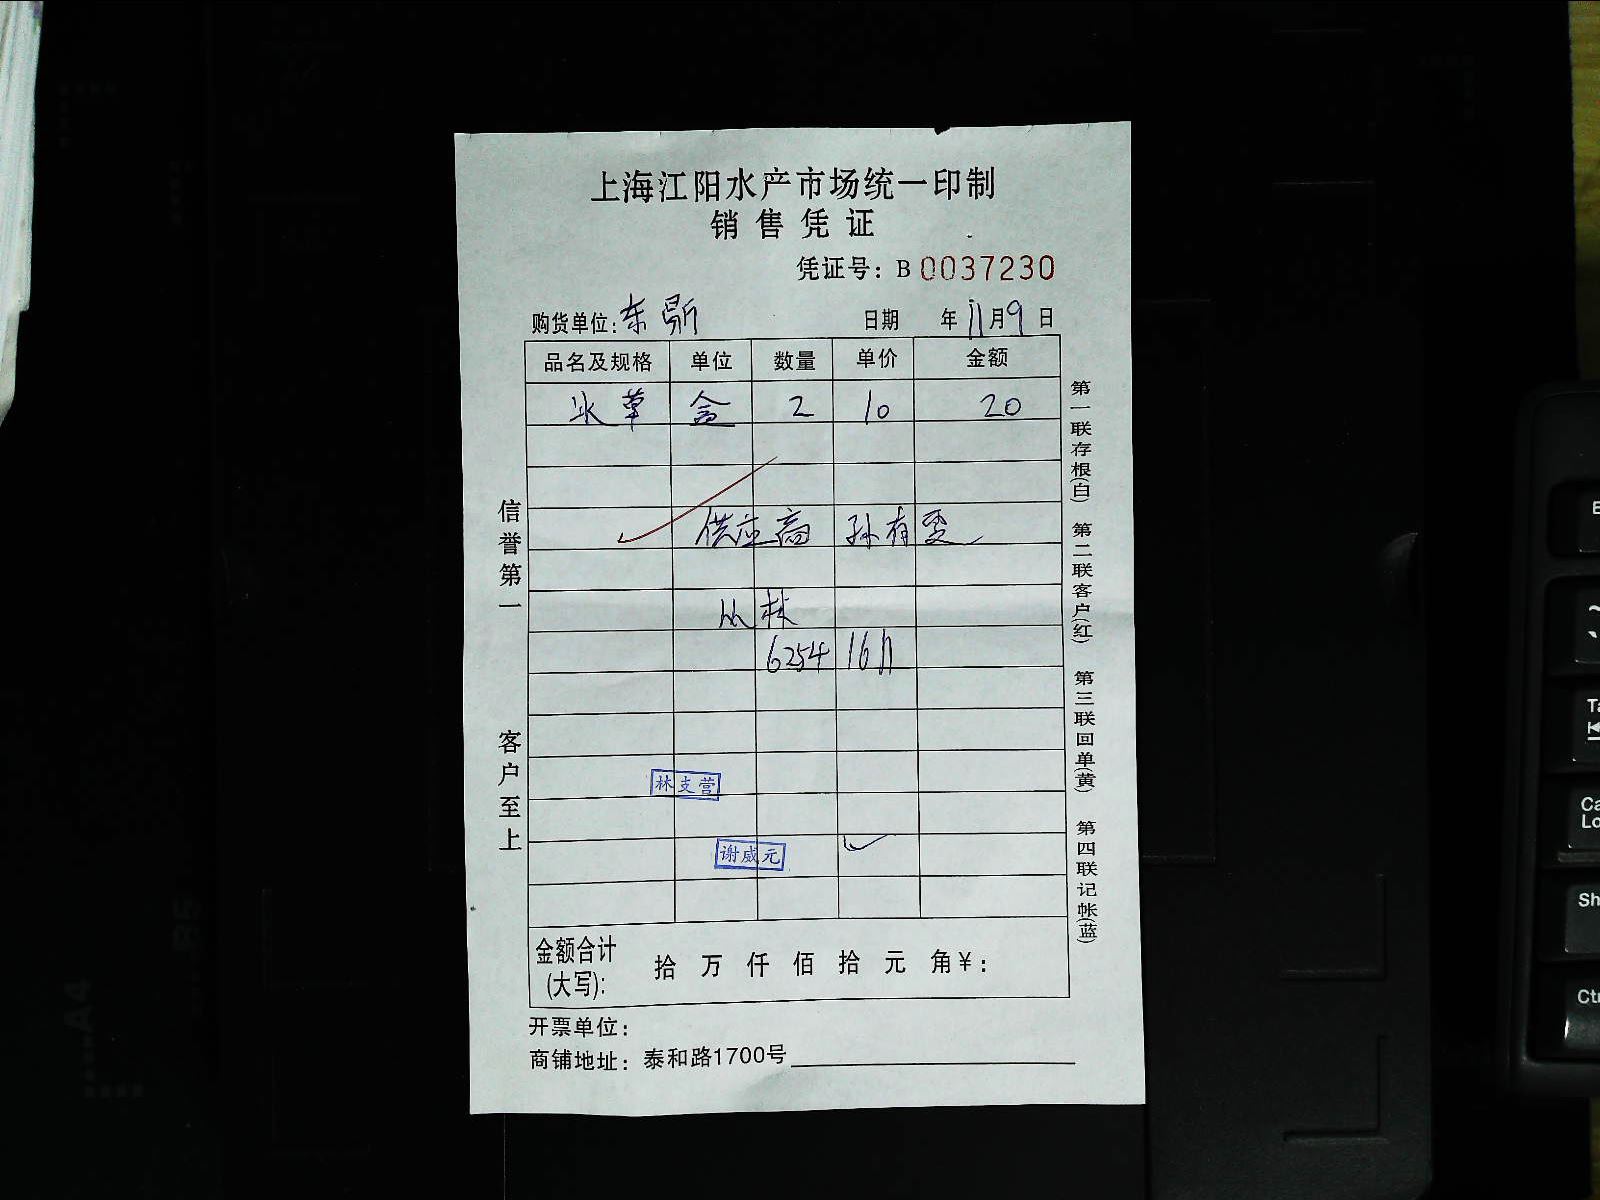 上海江阳水产市场统一印制
销售凭证
凭证号：B 0037230
购货单位：东
日期 年 11月9日
品名及规格 单位 数量 单价 金额
冰草 盒 2 10 20
供应商 孙有
林
6254 1611
林支营
谢威元
金额合计(大写)： 拾 万 仟 佰 拾 元 角 ¥：
开票单位：
商铺地址：泰和路1700号
信誉第一 客户至上
第一联存根(白) 第二联客户(红) 第三联回单(黄) 第四联记帐(蓝)
A4
B5
Sh
Ctr